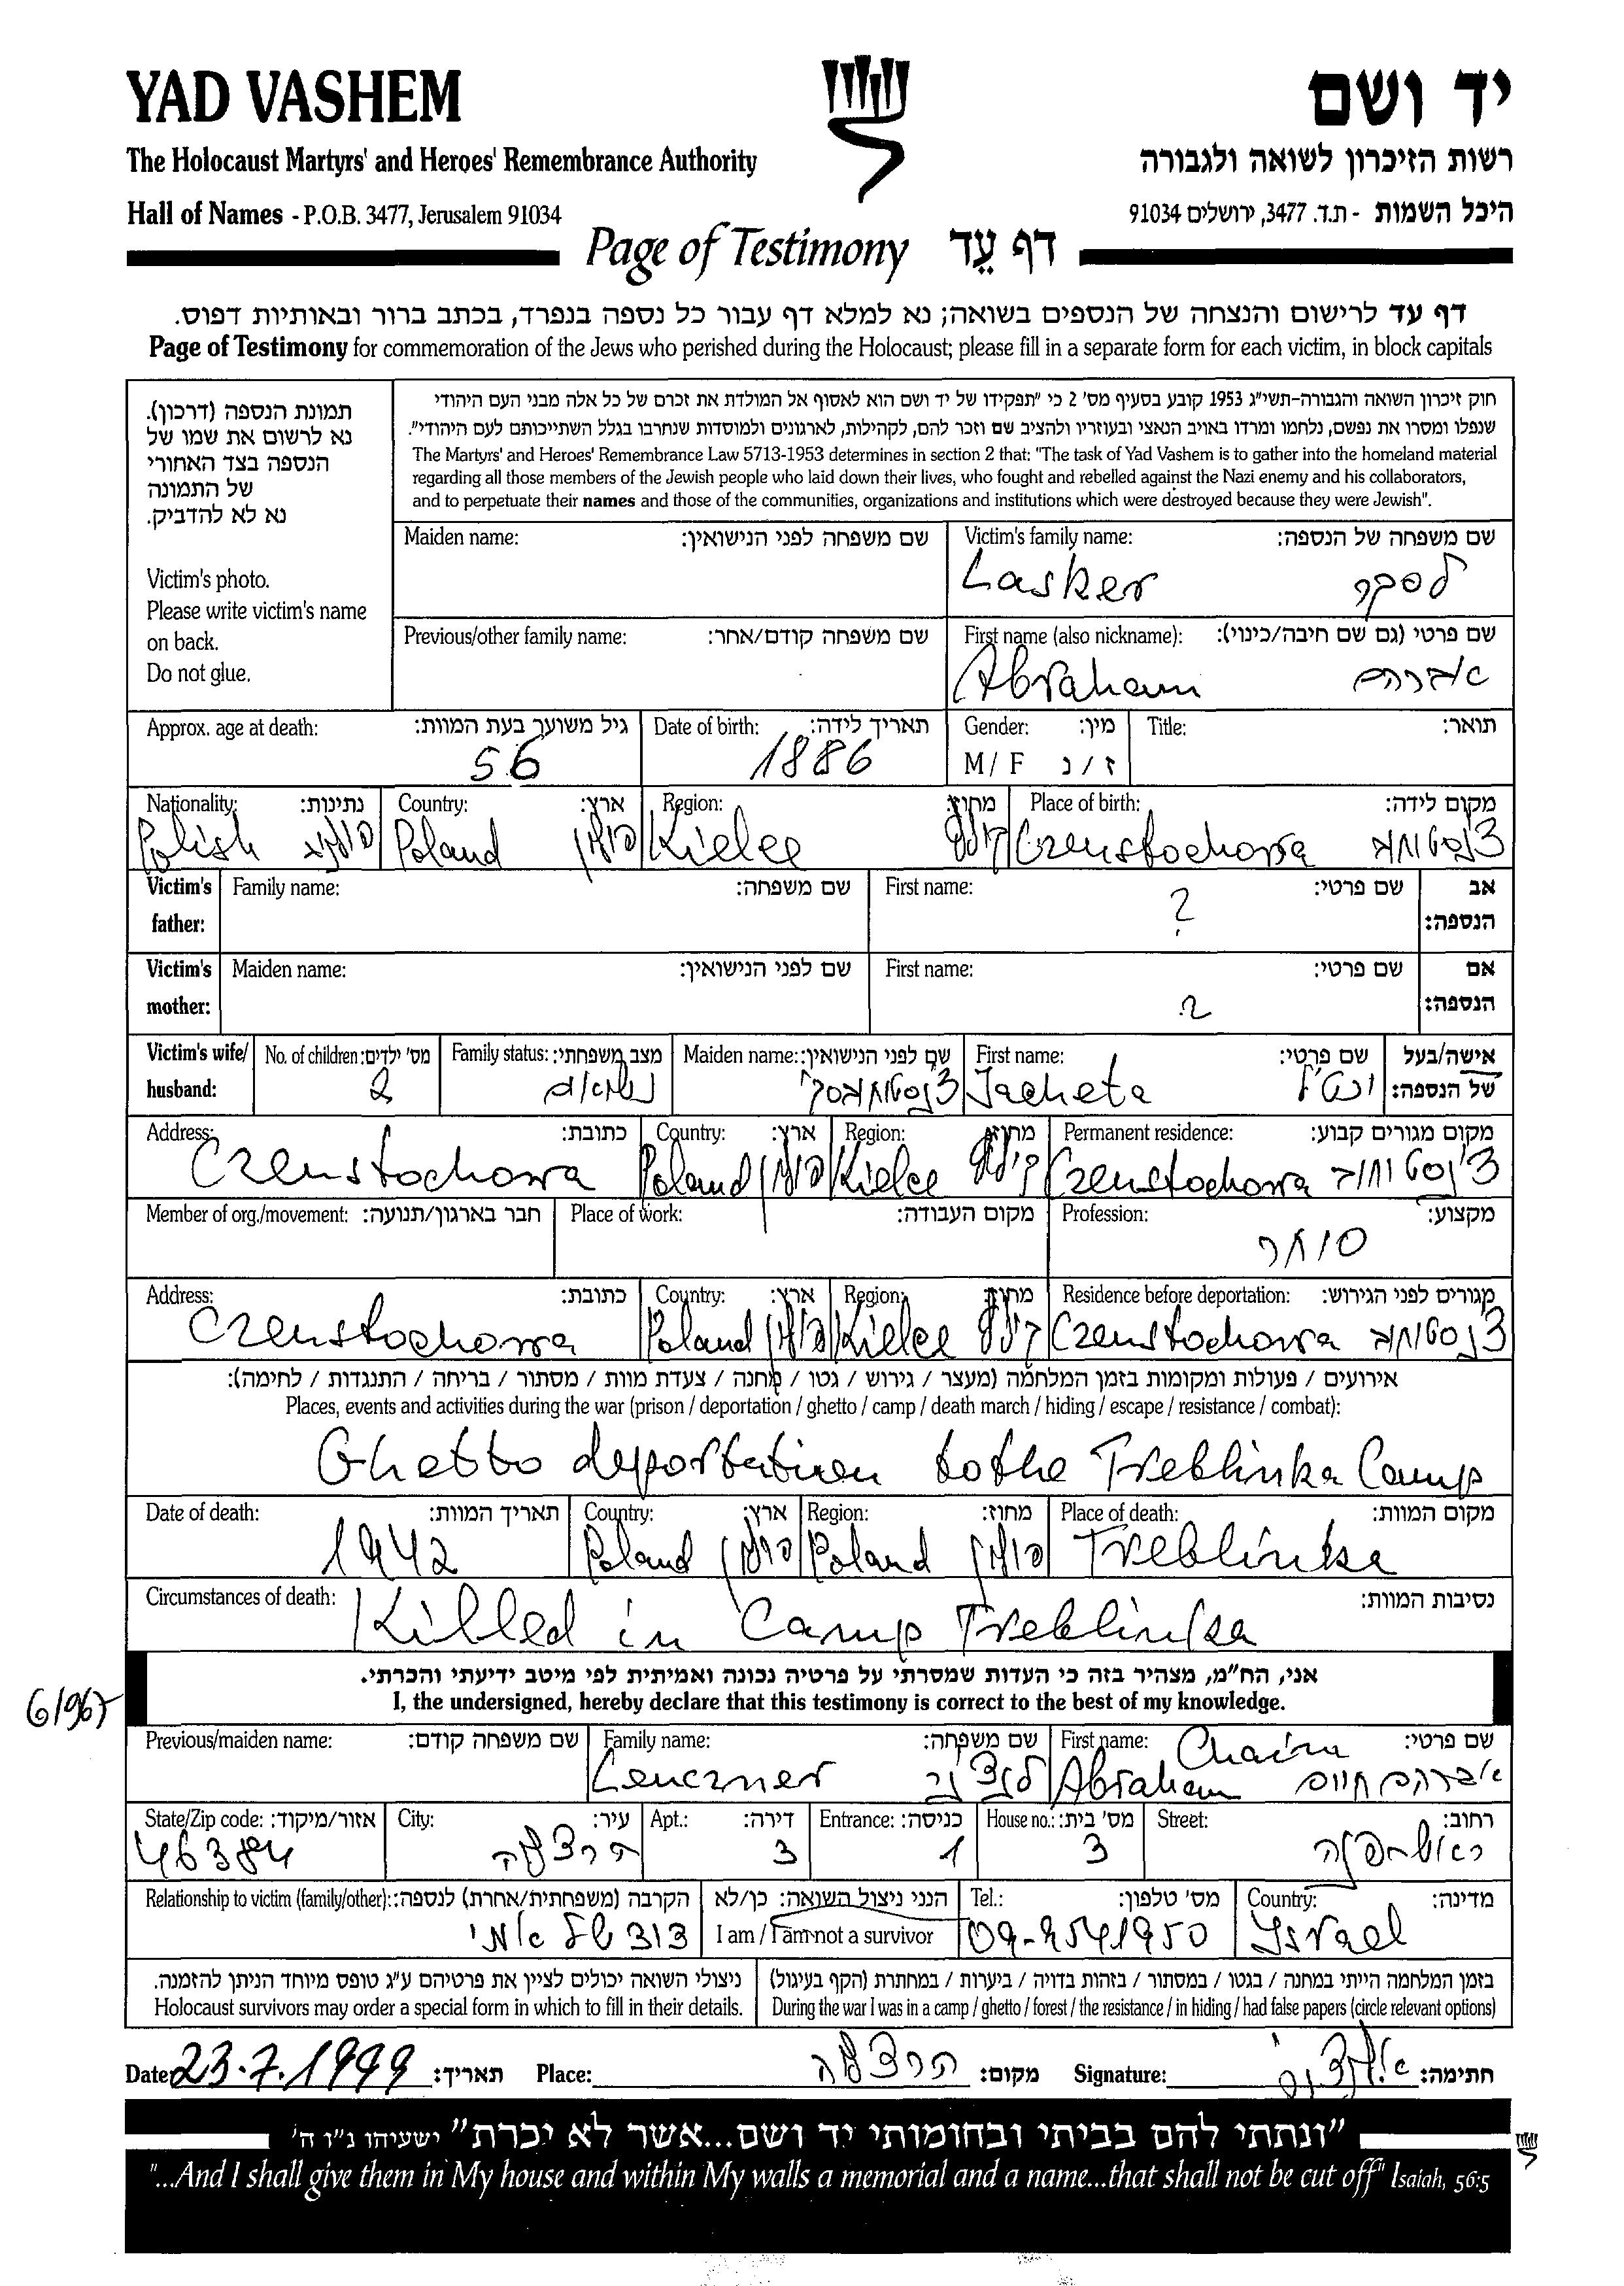 YAD VASHEM
יד ושם
The Holocaust Martyrs' and Heroes' Remembrance Authority
רשות הזיכרון לשואה ולגבורה
Hall of Names - P.O.B. 3477, Jerusalem 91034
היכל השמות - ת.ד. 3477, ירושלים 91034
Page of Testimony דף עֵד
דף עד לרישום והנצחה של הנספים בשואה; נא למלא דף עבור כל נספה בנפרד, בכתב ברור ובאותיות דפוס.
Page of Testimony for commemoration of the Jews who perished during the Holocaust; please fill in a separate form for each victim, in block capitals
תמונת הנספה (דרכון).
נא לרשום את שמו של
הנספה בצד האחורי
של התמונה
נא לא להדביק.
Victim's photo.
Please write victim's name
on back.
Do not glue.
חוק זיכרון השואה והגבורה-תשי"ג 1953 קובע בסעיף מס' 2 כי "תפקידו של יד ושם הוא לאסוף אל המולדת את זכרם של כל אלה מבני העם היהודי
שנפלו ומסרו את נפשם, נלחמו ומרדו באויב הנאצי ובעוזריו ולהציב שם וזכר להם, לקהילות, לארגונים ולמוסדות שנחרבו בגלל השתייכותם לעם היהודי".
The Martyrs' and Heroes' Remembrance Law 5713-1953 determines in section 2 that: "The task of Yad Vashem is to gather into the homeland material
regarding all those members of the Jewish people who laid down their lives, who fought and rebelled against the Nazi enemy and his collaborators,
and to perpetuate their names and those of the communities, organizations and institutions which were destroyed because they were Jewish".
Maiden name: שם משפחה לפני הנישואין:
Victim's family name: שם משפחה של הנספה:
Lasker לסקר
Previous/other family name: שם משפחה קודם/אחר:
First name (also nickname): שם פרטי (גם שם חיבה/כינוי):
Abraham אברהם
Approx. age at death: גיל משוער בעת המוות:
56
Date of birth: תאריך לידה:
1886
Gender: מין:
M / F ז / נ
Title: תואר:
Nationality: נתינות:
Polish פולני
Country: ארץ:
Poland פולין
Region: מחוז:
Kielce קילץ
Place of birth: מקום לידה:
Czenstochowa צ'נסטוחוב
Victim's father: Family name: שם משפחה:
First name: שם פרטי:
?
אב הנספה:
Victim's mother: Maiden name: שם לפני הנישואין:
First name: שם פרטי:
?
אם הנספה:
Victim's wife/ husband:
No. of children: מס' ילדים:
2
Family status: מצב משפחתי:
נשוי
Maiden name: שם לפני הנישואין:
First name: שם פרטי:
Jacheta
אישה/בעל של הנספה:
Address: כתובת:
Czenstochowa
Country: ארץ:
Poland פולין
Region: מחוז:
Kielce קילץ
Permanent residence: מקום מגורים קבוע:
Czenstochowa צ'נסטוחוב
Member of org./movement: חבר בארגון/תנועה:
Place of work: מקום העבודה:
Profession: מקצוע:
סוחר
Address: כתובת:
Czenstochowa
Country: ארץ:
Poland פולין
Region: מחוז:
Kielce קילץ
Residence before deportation: מגורים לפני הגירוש:
Czenstochowa צ'נסטוחוב
אירועים / פעולות ומקומות בזמן המלחמה (מעצר / גירוש / גטו / מחנה / צעדת מוות / מסתור / בריחה / התנגדות / לחימה):
Places, events and activities during the war (prison / deportation / ghetto / camp / death march / hiding / escape / resistance / combat):
Ghetto deportation to the Treblinka Camp
Date of death: תאריך המוות:
1942
Country: ארץ:
Poland פולין
Region: מחוז:
Poland פולין
Place of death: מקום המוות:
Treblinka
Circumstances of death: נסיבות המוות:
Killed in Camp Treblinka
אני, הח"מ, מצהיר בזה כי העדות שמסרתי על פרטיה נכונה ואמיתית לפי מיטב ידיעתי והכרתי.
I, the undersigned, hereby declare that this testimony is correct to the best of my knowledge.
Previous/maiden name: שם משפחה קודם:
Family name: שם משפחה:
Lenczner לנצנר
First name: שם פרטי:
Chaim
Abraham אברהם חיים
State/Zip code: אזור/מיקוד:
46384
City: עיר:
הרצליה
Apt.: דירה:
3
Entrance: כניסה:
1
House no.: מס' בית:
3
Street: רחוב:
ראש פינה
Relationship to victim (family/other): הקרבה (משפחתית/אחרת) לנספה:
דוד של אמי
הנני ניצול השואה: כן/לא
I am / I am not a survivor
Tel.: מס' טלפון:
09-9541950
Country: מדינה:
Israel
ניצולי השואה יכולים לציין את פרטיהם ע"ג טופס מיוחד הניתן להזמנה.
Holocaust survivors may order a special form in which to fill in their details.
בזמן המלחמה הייתי במחנה / בגטו / במסתור / בזהות בדויה / ביערות / במחתרת (הקף בעיגול)
During the war I was in a camp / ghetto / forest / the resistance / in hiding / had false papers (circle relevant options)
Date: 23.7.1999 תאריך:
Place: הרצליה מקום:
Signature: חתימה:
"ונתתי להם בביתי ובחומותי יד ושם...אשר לא יכרת" ישעיהו נ"ו ה'
"...And I shall give them in My house and within My walls a memorial and a name...that shall not be cut off" Isaiah, 56:5